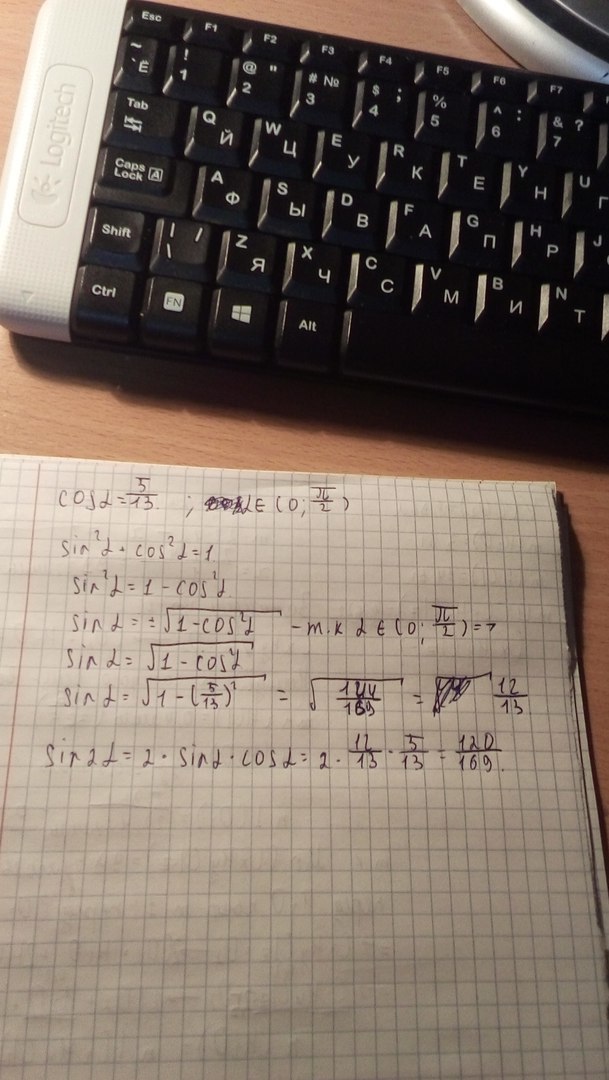 Esc F1 F2 F3 F4 F5 F6 F7
~ ` Ё ! 1 @ " 2 # № 3 $ ; 4 % 5 ^ : 6 & ? 7
Tab Q Й W Ц E У R К T Е Y Н U Г
Caps Lock A A Ф S Ы D В F А G П H Р J
Shift | / \ Z Я X Ч C С V М B И N Т
Ctrl FN Alt
Logitech
cos α = 5/13 ; α ∈ (0; π/2)
sin²α + cos²α = 1
sin²α = 1 - cos²α
sin α = ±√(1-cos²α) - т.к α ∈ (0; π/2) =>
sin α = √(1 - cos²α)
sin α = √(1 - (5/13)²) = √(144/169) = 12/13
sin 2α = 2 · sin α · cos α = 2 · 12/13 · 5/13 = 120/169.